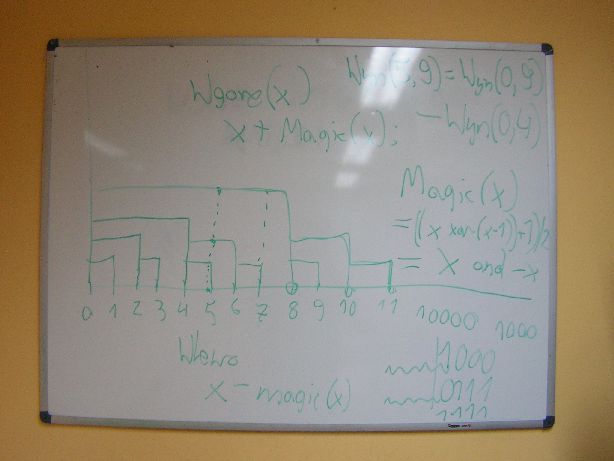 Wgore(x)
x + Magic(x);
Wyn(5,9) = Wyn(0,9)
- Wyn(0,4)
Magic(x)
= ((x xor (x-1))+1)/2
= x and -x
0 1 2 3 4 5 6 7 8 9 10 11
10000 1000
Wlewo
x - magic(x)
1000
0111
1111